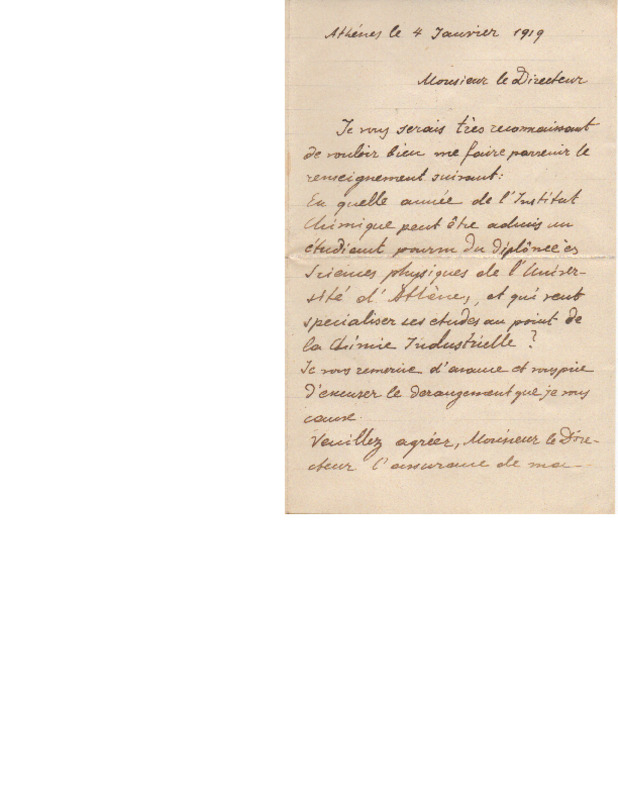 Athénes le 4 Janvier 1919
Monsieur le Directeur
Je vous serais très reconnaissant
de vouloir bien me faire parvenir le
renseignement suivant:
En quelle année de l'Institut
Chimique peut être admis un
étudiant pourvu du diplône ès
Sciences physiques de l'Univer-
sité d'Athènes, et qui veut
specialiser ses etudes au point de
la Chimie Industrielle ?
Je vous remercie d'avance et vous prie
d'excuser le derangement que je vous
cause.
Veuillez agréer, Monsieur le Dire-
cteur l'assurance de ma-